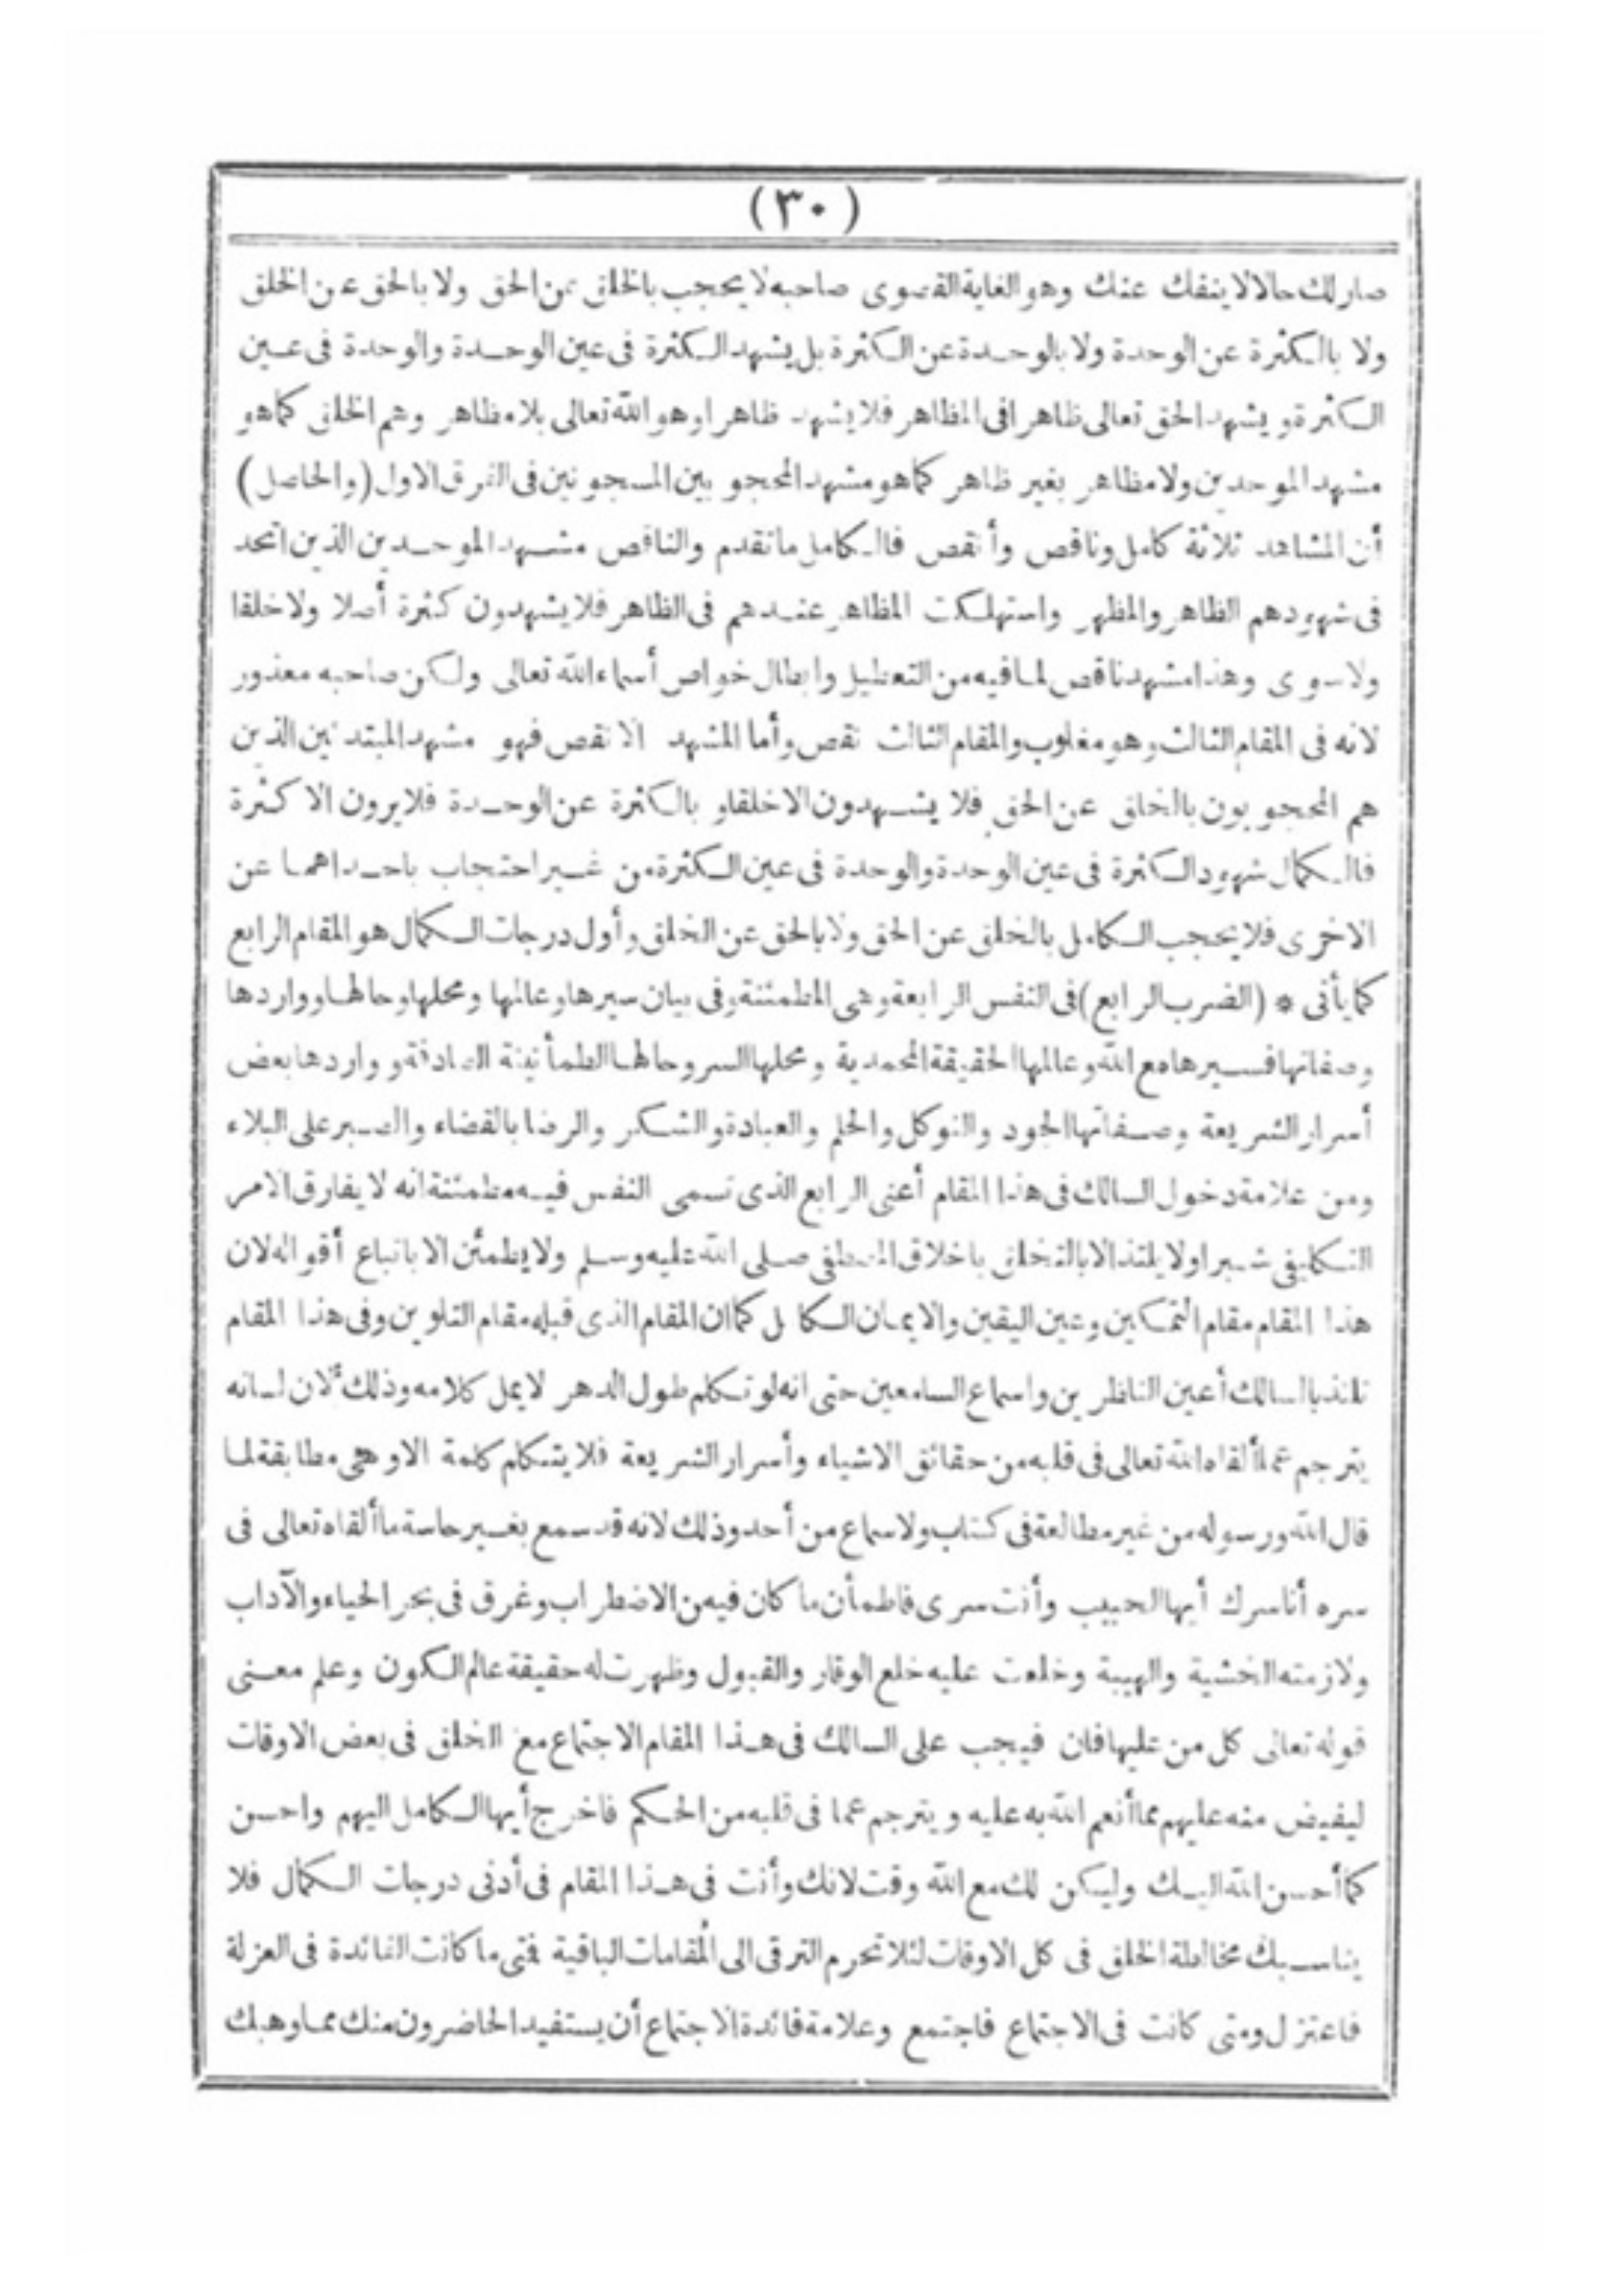 (٣٠)
صار لك حالا لا ينفك عنك وهو الغاية القصوى صاحبه لا يحجب بالخلق عن الحق ولا بالحق عن الخلق
ولا بالكثرة عن الوحدة ولا بالوحدة عن الكثرة بل يشهد الكثرة فى عين الوحدة والوحدة فى عين
الكثرة ويشهد الحق تعالى ظاهرا فى المظاهر فلا يشهد ظاهرا وهو الله تعالى بلا مظاهر وهم الخلق كما هو
مشهد الموحدين ولا مظاهر بغير ظاهر كما هو مشهد المحجو بين المسجونين فى الفرق الاول (والحاصل)
أن المشاهد ثلاثة كامل وناقص وأنقص فالكامل ما تقدم والناقص مشهد الموحدين الذين اتحد
فى شهودهم الظاهر والمظهر واستهلكت المظاهر عندهم فى الظاهر فلا يشهدون كثرة أصلا ولا خلقا
ولا سوى وهذا مشهد ناقص لما فيه من التعطيل وابطال خواص أسماء الله تعالى ولكن صاحبه معذور
لانه فى المقام الثالث وهو مغلوب والمقام الثالث نقص وأما المشهد الانقص فهو مشهد المبتدئين الذين
هم المحجوبون بالخلق عن الحق فلا يشهدون الا خلقا و بالكثرة عن الوحدة فلا يرون الا كثرة
فالكمال شهود الكثرة فى عين الوحدة والوحدة فى عين الكثرة من غير احتجاب باحداهما عن
الاخرى فلا يحجب الكامل بالخلق عن الحق ولا بالحق عن الخلق وأول درجات الكمال هو المقام الرابع
كما يأتى * (الضرب الرابع) فى النفس الرابعة وهى المطمئنة وفى بيان سيرها وعالمها ومحلها وحالها وواردها
وصفاتها فسيرها مع الله وعالمها الحقيقة المحمدية ومحلها السر وحالها الطمأنينة الصادقة وواردها بعض
أسرار الشريعة وصفاتها الجود والتوكل والحلم والعبادة والشكر والرضا بالقضاء والصبر على البلاء
ومن علامة دخول السالك فى هذا المقام أعنى الرابع الذى تسمى النفس فيه مطمئنة انه لا يفارق الامر
التكليفى شبرا ولا يلتذ الا بالتخلق باخلاق المصطفى صلى الله عليه وسلم ولا يطمئن الا باتباع أقواله لان
هذا المقام مقام التمكين وعين اليقين والايمان الكامل كما ان المقام الذى قبله مقام التلوين وفى هذا المقام
تلتذ بالسالك أعين الناظرين واسماع السامعين حتى انه لو تكلم طول الدهر لا يمل كلامه وذلك لان لسانه
يترجم عما ألقاه الله تعالى فى قلبه من حقائق الاشياء وأسرار الشريعة فلا يتكلم كلمة الا وهى مطابقة لما
قال الله ورسوله من غير مطالعة فى كتاب ولا سماع من أحد وذلك لانه قد سمع بغير حاسة ما ألقاه تعالى فى
سره أنا سرك أيها الحبيب وأنت سرى فاطمأن ما كان فيه من الاضطراب وغرق فى بحر الحياء والآداب
ولازمته الخشية والهيبة وخلعت عليه خلع الوقار والقبول وظهرت له حقيقة عالم الكون وعلم معنى
قوله تعالى كل من عليها فان فيجب على السالك فى هذا المقام الاجتماع مع الخلق فى بعض الاوقات
ليفيض منه عليهم مما أنعم الله به عليه ويترجم عما فى قلبه من الحكم فاخرج أيها الكامل اليهم واحسن
كما أحسن الله اليك وليكن لك مع الله وقت لانك وأنت فى هذا المقام فى أدنى درجات الكمال فلا
يناسبك مخالطة الخلق فى كل الاوقات لئلا تحرم الترقى الى المقامات الباقية فمتى ما كانت الفائدة فى العزلة
فاعتزل ومتى كانت فى الاجتماع فاجتمع وعلامة فائدة الاجتماع أن يستفيد الحاضرون منك مما وهبك